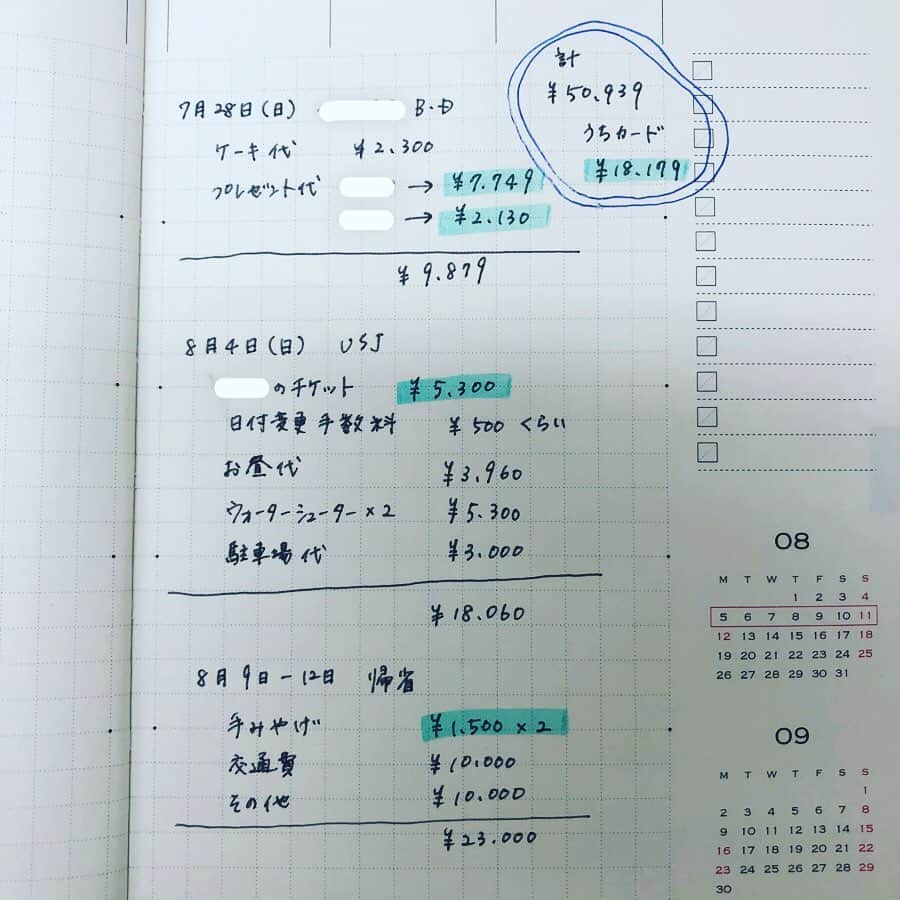 計
¥50.939
うちカード
¥18.179
7月28日(日) B・D
ケーキ代 ¥2.300
プレゼント代 → ¥7.749
→ ¥2.130
¥9.879
8月4日(日) USJ
のチケット ¥5.300
日付変更手数料 ¥500くらい
お昼代 ¥3.960
ウォーターシューター×2 ¥5.300
駐車場代 ¥3.000
¥18.060
8月9日-12日 帰省
手みやげ ¥1.500×2
交通費 ¥10.000
その他 ¥10.000
¥23.000
08
M T W T F S S
1 2 3 4
5 6 7 8 9 10 11
12 13 14 15 16 17 18
19 20 21 22 23 24 25
26 27 28 29 30 31
09
M T W T F S S
1
2 3 4 5 6 7 8
9 10 11 12 13 14 15
16 17 18 19 20 21 22
23 24 25 26 27 28 29
30